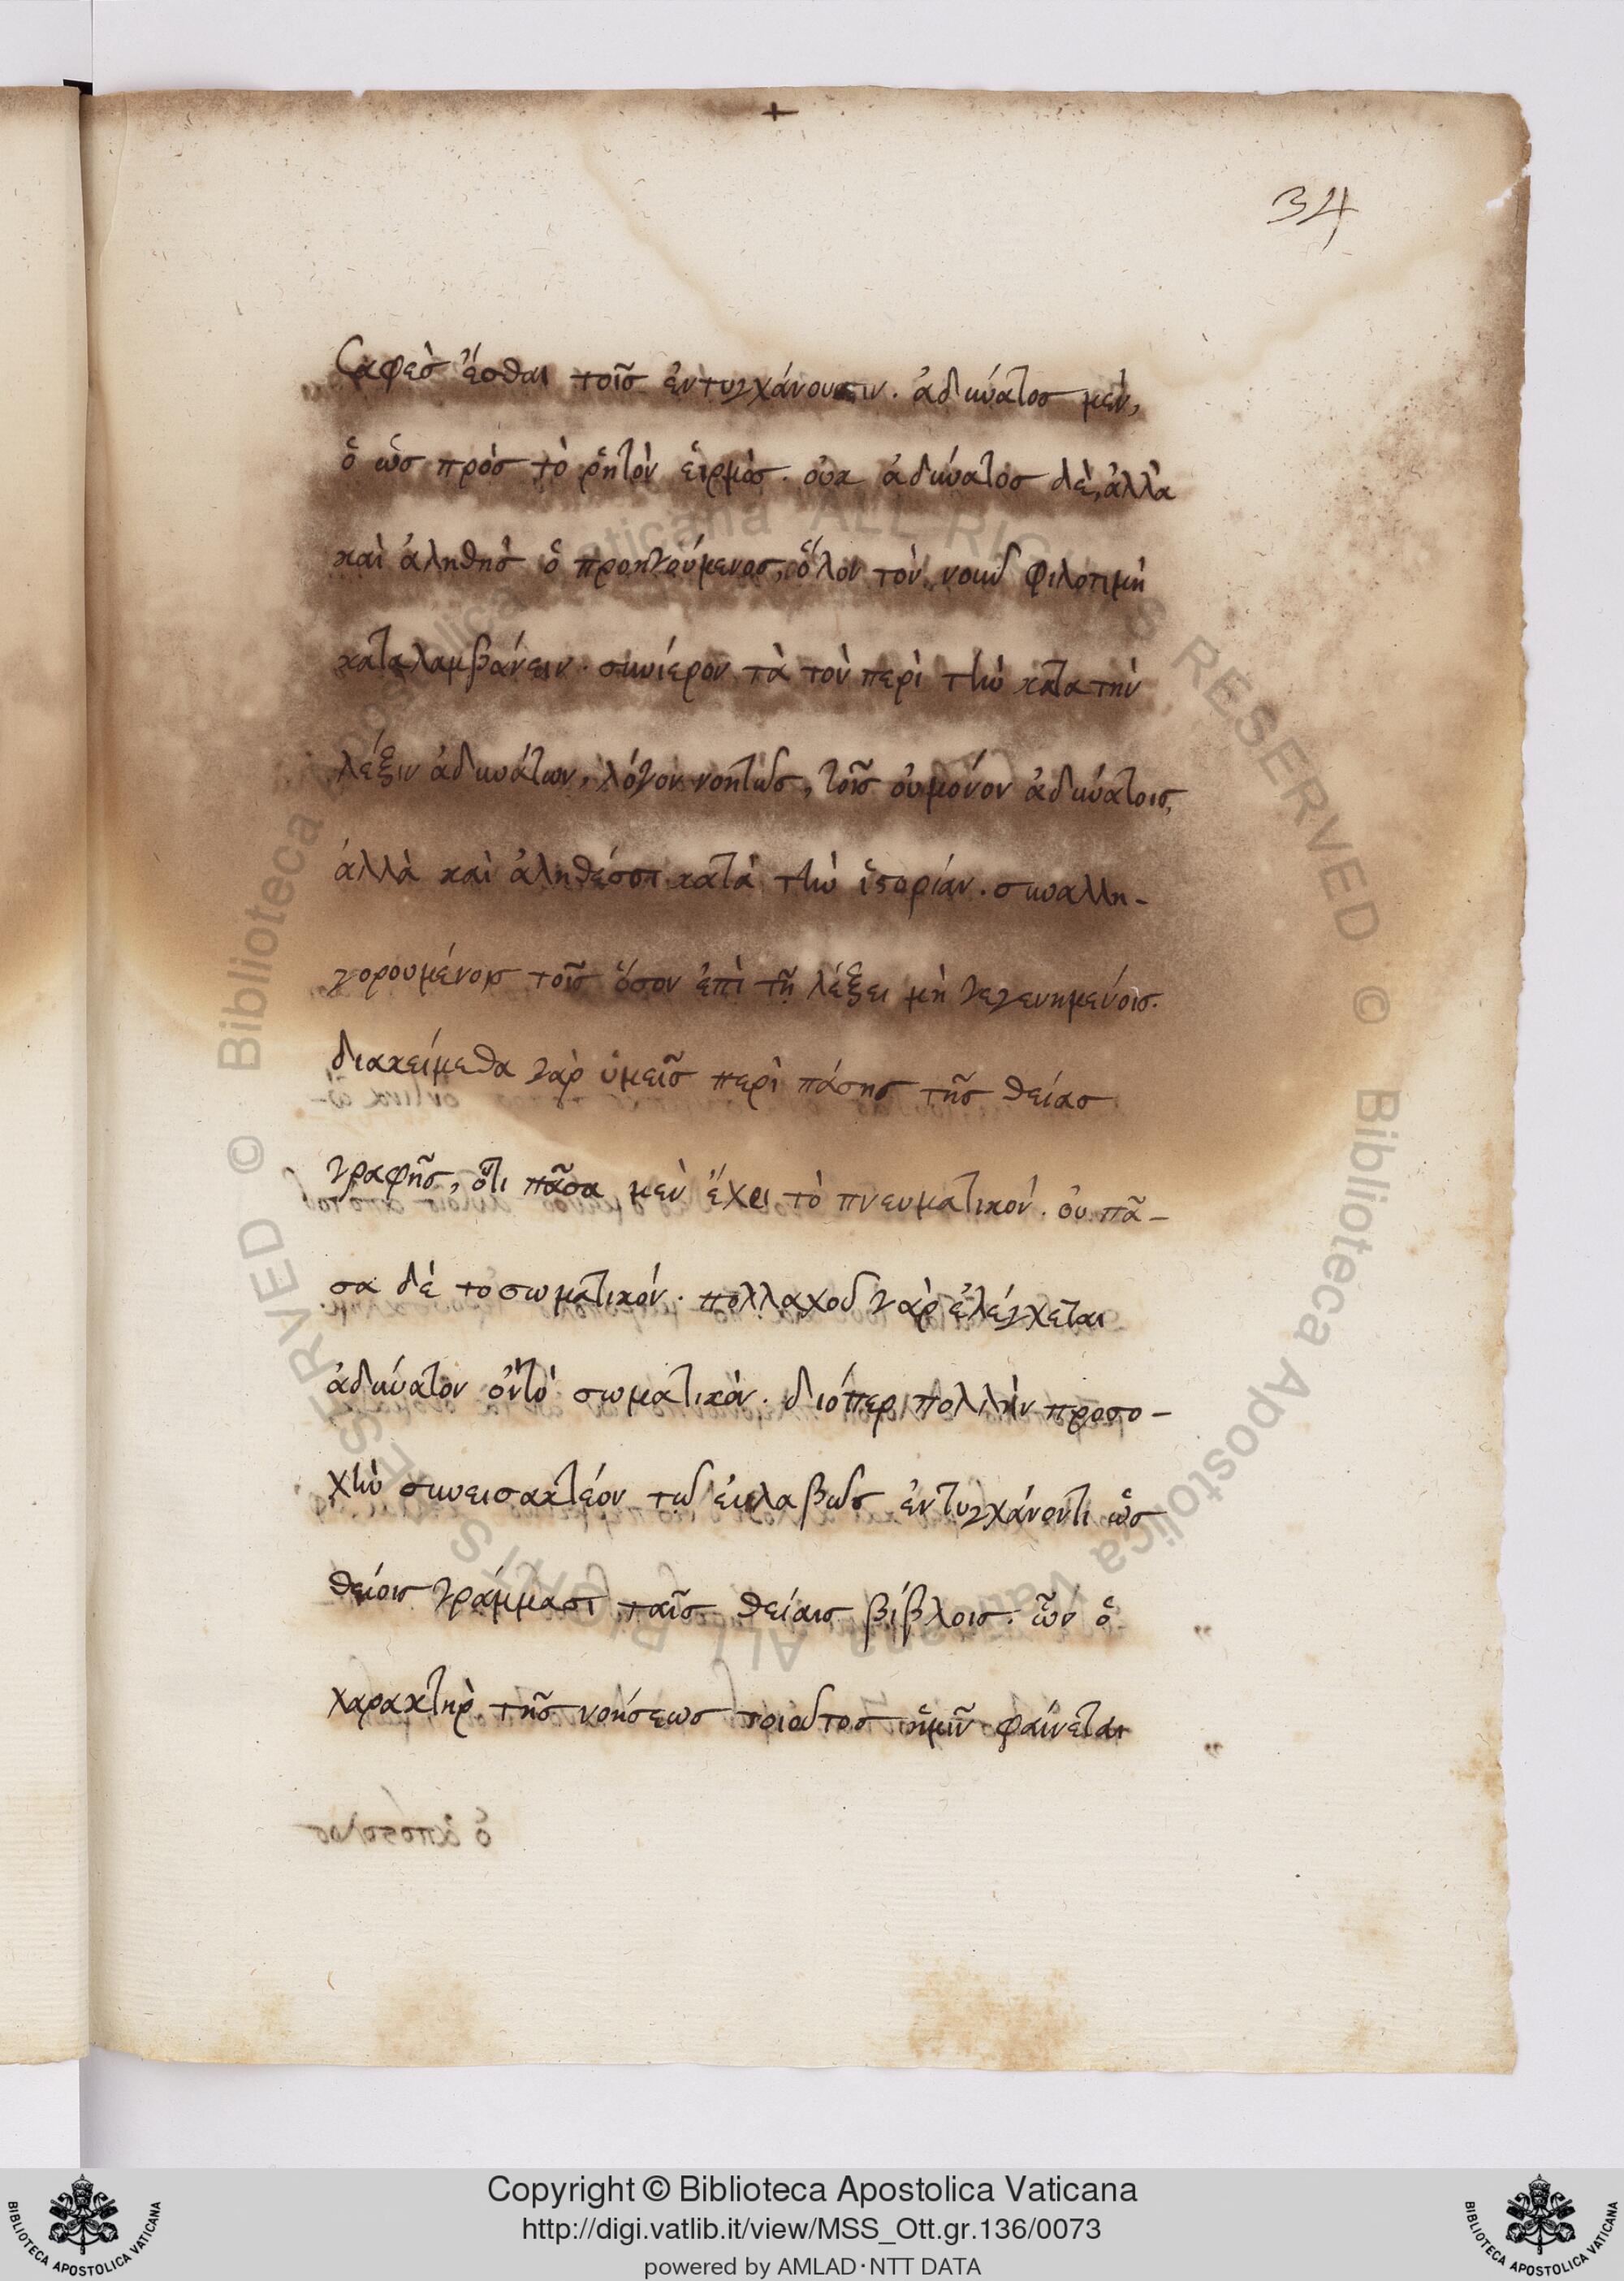 +
34
σαφὲσ ἔσθαι τοῖσ ἐντυγχάνουσιν. ἀδύνατοσ μὲν,
ὁ ὡσ πρὸσ τὸ ῥητὸν εἱρμὸσ. οὐκ ἀδύνατοσ δὲ, ἀλλὰ
καὶ ἀληθὴσ ὁ προηγούμενοσ, ὅλον τὸν νοῦν φιλοτιμη
καταλαμβάνειν. συνίερον τὰ τὸν περὶ τὴν κατα τὴν
λέξιν ἀδυνάτων, λόγον νοητῶσ, τοῖσ οὐ μόνον ἀδυνάτοισ,
ἀλλὰ καὶ ἀληθέσσι κατὰ τὴν ἱστορίαν. συναλλη-
γορουμένοισ τοῖσ ὅσον ἐπὶ τῇ λέξει μὴ γεγενημένοισ.
διακείμεθα γὰρ ὑμεῖσ περὶ πάσησ τῆσ θείασ
γραφῆσ, ὅτι πᾶσα μὲν ἔχει τὸ πνευματικόν. οὐ πᾶ-
σα δὲ τὸ σωματικόν. πολλαχοῦ γὰρ ἐλέγχεται
ἀδύνατον ὂν τὸ σωματικὸν. διόπερ πολλὴν προσο-
χὴν συνεισακτέον τῷ εὐλαβῶσ ἐντυγχάνοντι ὡσ
θείοισ γράμμασι ταῖσ θείαισ βίβλοισ. ὧν ὁ
χαρακτὴρ τῆσ νοήσεωσ τοιοῦτοσ ἡμῖν φαίνεται
Copyright © Biblioteca Apostolica Vaticana
http://digi.vatlib.it/view/MSS_Ott.gr.136/0073
powered by AMLAD·NTT DATA
BIBLIOTECA APOSTOLICA VATICANA
BIBLIOTECA APOSTOLICA VATICANA
Biblioteca Apostolica Vaticana ALL RIGHTS RESERVED ©
Biblioteca Apostolica Vaticana ALL RIGHTS RESERVED ©